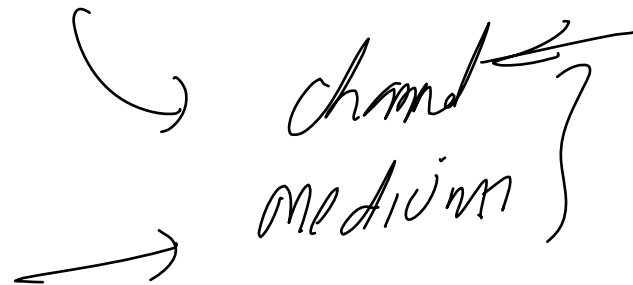 channel
medium